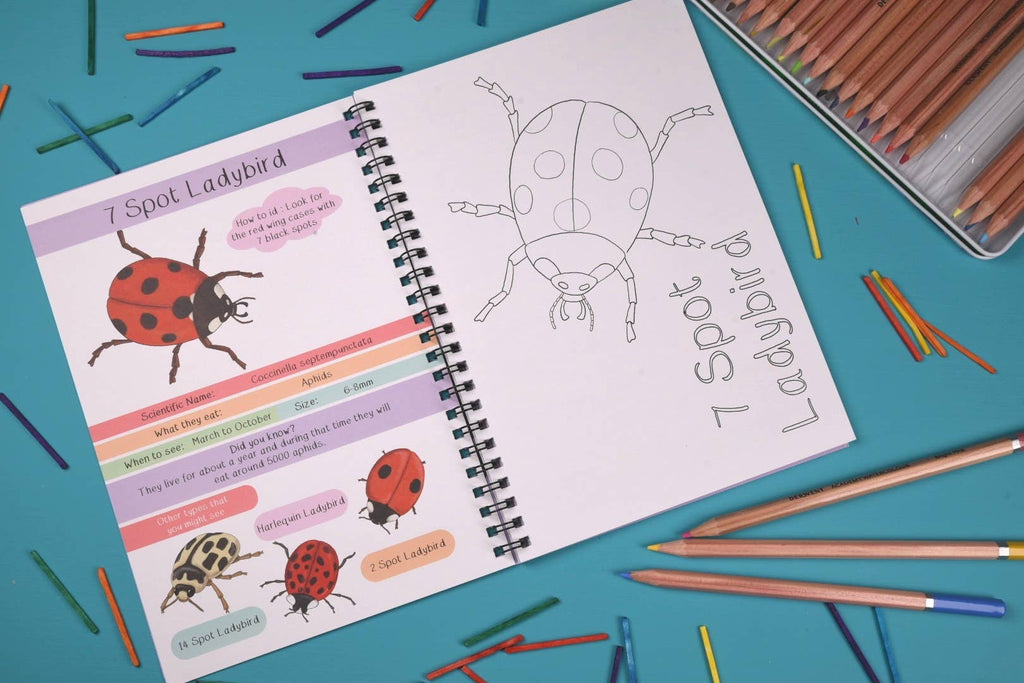 7 Spot Ladybird
How to id : Look for
the red wing cases with
7 black spots
Scientific Name: Coccinella septempunctata
What they eat: Aphids
When to see: March to October Size: 6-8mm
Did you know?
They live for about a year and during that time they will
eat around 5000 aphids.
Other types that
you might see
Harlequin Ladybird
2 Spot Ladybird
14 Spot Ladybird
7 Spot
Ladybird